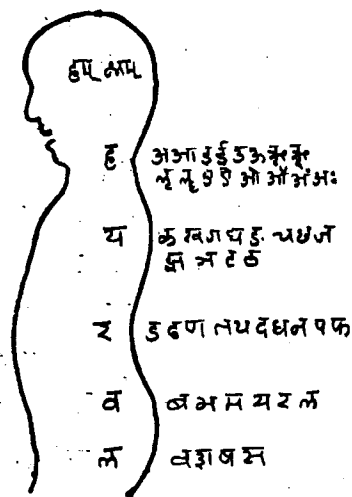 हम् क्षम्
ह अ आ इ ई उ ऊ ऋ ॠ
ऌ ॡ ए ऐ ओ औ अं अः
य क ख ग घ ङ च छ ज
झ ञ ट ठ
र ड ढ ण त थ द ध न प फ
व ब भ म य र ल
ल व श ष स